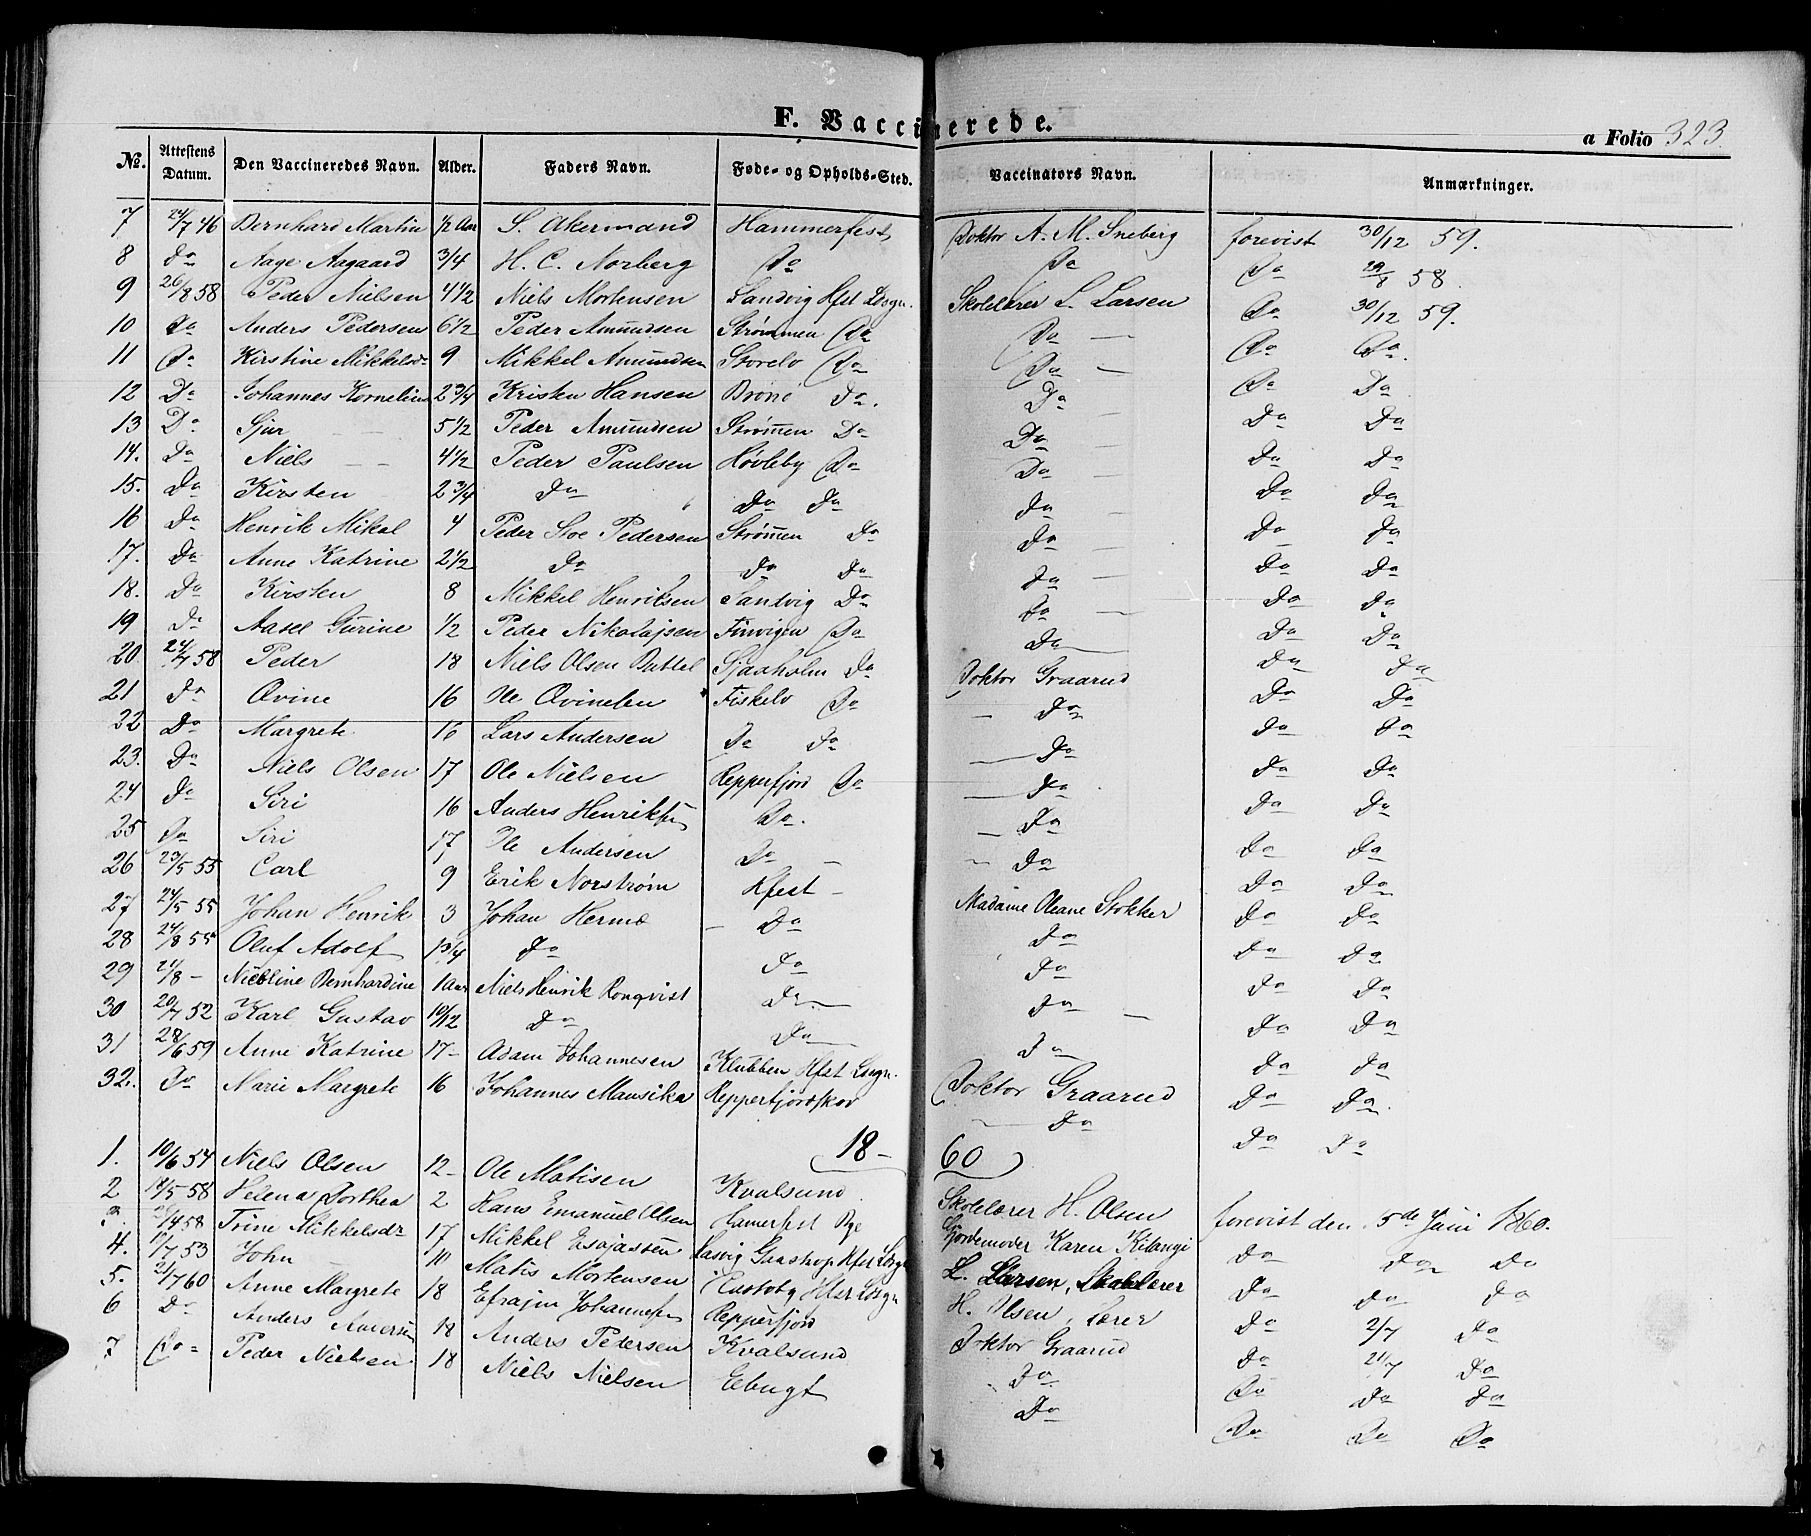 F. Vaccinerede.
a Folio 323.
No. Attestens Datum. Den Vaccineredes Navn. Alder. Faders Navn. Føde- og Opholds-Sted. Vaccinators Navn. Anmærkninger.
7 24/7 46 Bernhard Martin 1/2 Aar S. Akermand Hammerfest Doktor A. M. Sneberg forevist 30/12 59.
8 Do Aage Aagaard 3/4 H. C. Norberg Do Do Do 29/8 58.
9 26/8 58 Peder Nielsen 4 1/2 Niels Mortensen Sandvig Hfst Lsogn. Skolelærer L. Larsen Do 30/12 59.
10 Do Anders Pedersen 6 1/2 Peder Amundsen Strømmen Do Do — Do Do.
11 Do Kirstine Mikkelsd. 9 Mikkel Amundsen Storelv Do Do — Do Do
12 Do Johannes Kornelius 2 3/4 Kristen Hansen Do. Do Do Do
13 Do Sjur 5 1/2 Peder Amundsen Strømen Do Do — Do Do
14. Do Niels — — 4 1/2 Peder Paulsen Høvleby Do Do — Do Do
15. Do Kirsten 2 3/4 Do Do Do Do Do Do
16 Do Henrik Mikal 4 Peder Stoe Pedersen Strømen Do Do — Do Do
17. Do Anne Katrine 2 1/2 Do Do Do Do — Do Do
18. Do Kirsten 8 Mikkel Henriksen Sandvig Do Do — Do Do
19 Do Aasel Gurine 1/2 Peder Nikolajsen Finvigen Do Do Do Do
20. 24/7 58 Peder 18 Niels Olsen Buttel Sjaaholm Do Doktor Graarud Do Do
21 Do Ovine 16 Ole Ovinelen Fiskelv Do — Do Do Do
22 Do Margrete 16 Lars Andersen Do Do — Do Do Do
23. Do Niels Olsen 17 Ole Nielsen Repperfjord Do — Do Do Do
24 Do Siri 16 Anders Henriksen Do. — Do Do Do
25 Do Siri 17 Ole Andersen Do — — Do Do Do
26 23/5 55 Carl 9 Erik Norstrøm Hfest — Madame Oleane Stokker Do Do
27 24/5 55 Johan Henrik 3 Johan Herme — Do Do Do Do
28 24/8 55 Oluf Adolf 1 3/4 Do Do Do Do Do
29 24/8 — Nicoline Bernhardine 1 Aar Niels Henrik Ronqvist Do — Do — Do Do
30 20/7 52 Karl Gustav 10/12 Do Do — Do Do Do
31 28/6 59 Anne Katrine 17- Adam Johannesen Klubben Hfst Lsogn. Doktor Graarud Do Do.
32. Do Marie Margrete 16 Johannes Mausika Repperfjordskov — Do Do Do
18 — 60
1. 10/6 54 Niels Olsen 12- Ole Matisen Kvalsund Skolelærer H. Olsen forevist den 5te Juni 1860.
2 14/5 58 Helena Dorthea 2 Hans Emanuel Olsen Hamerfest Bye Gjordemoder Karen Kilangi Do Do Do
3. 26/4 58 Trine Mikkelsdr 17 Mikkel Esajassen Hfst Lsogn L. Larsen, Skolelærer Do Do Do
4. 10/7 53 John — 11 Matis Mortensen Hfst Lsogn H. Olsen, Lærer Do 2/7 Do
5. 21/7 60 Anne Margrete 18 Efrajm Johannesen Repperfjord Doktor Graarud Do 21/7 Do
6 Do Anders Andersen 18 Anders Pedersen Kvalsund Do Do Do Do
7 Do Peder Nielsen 18 Niels Nielsen Eebugt Do Do Do Do